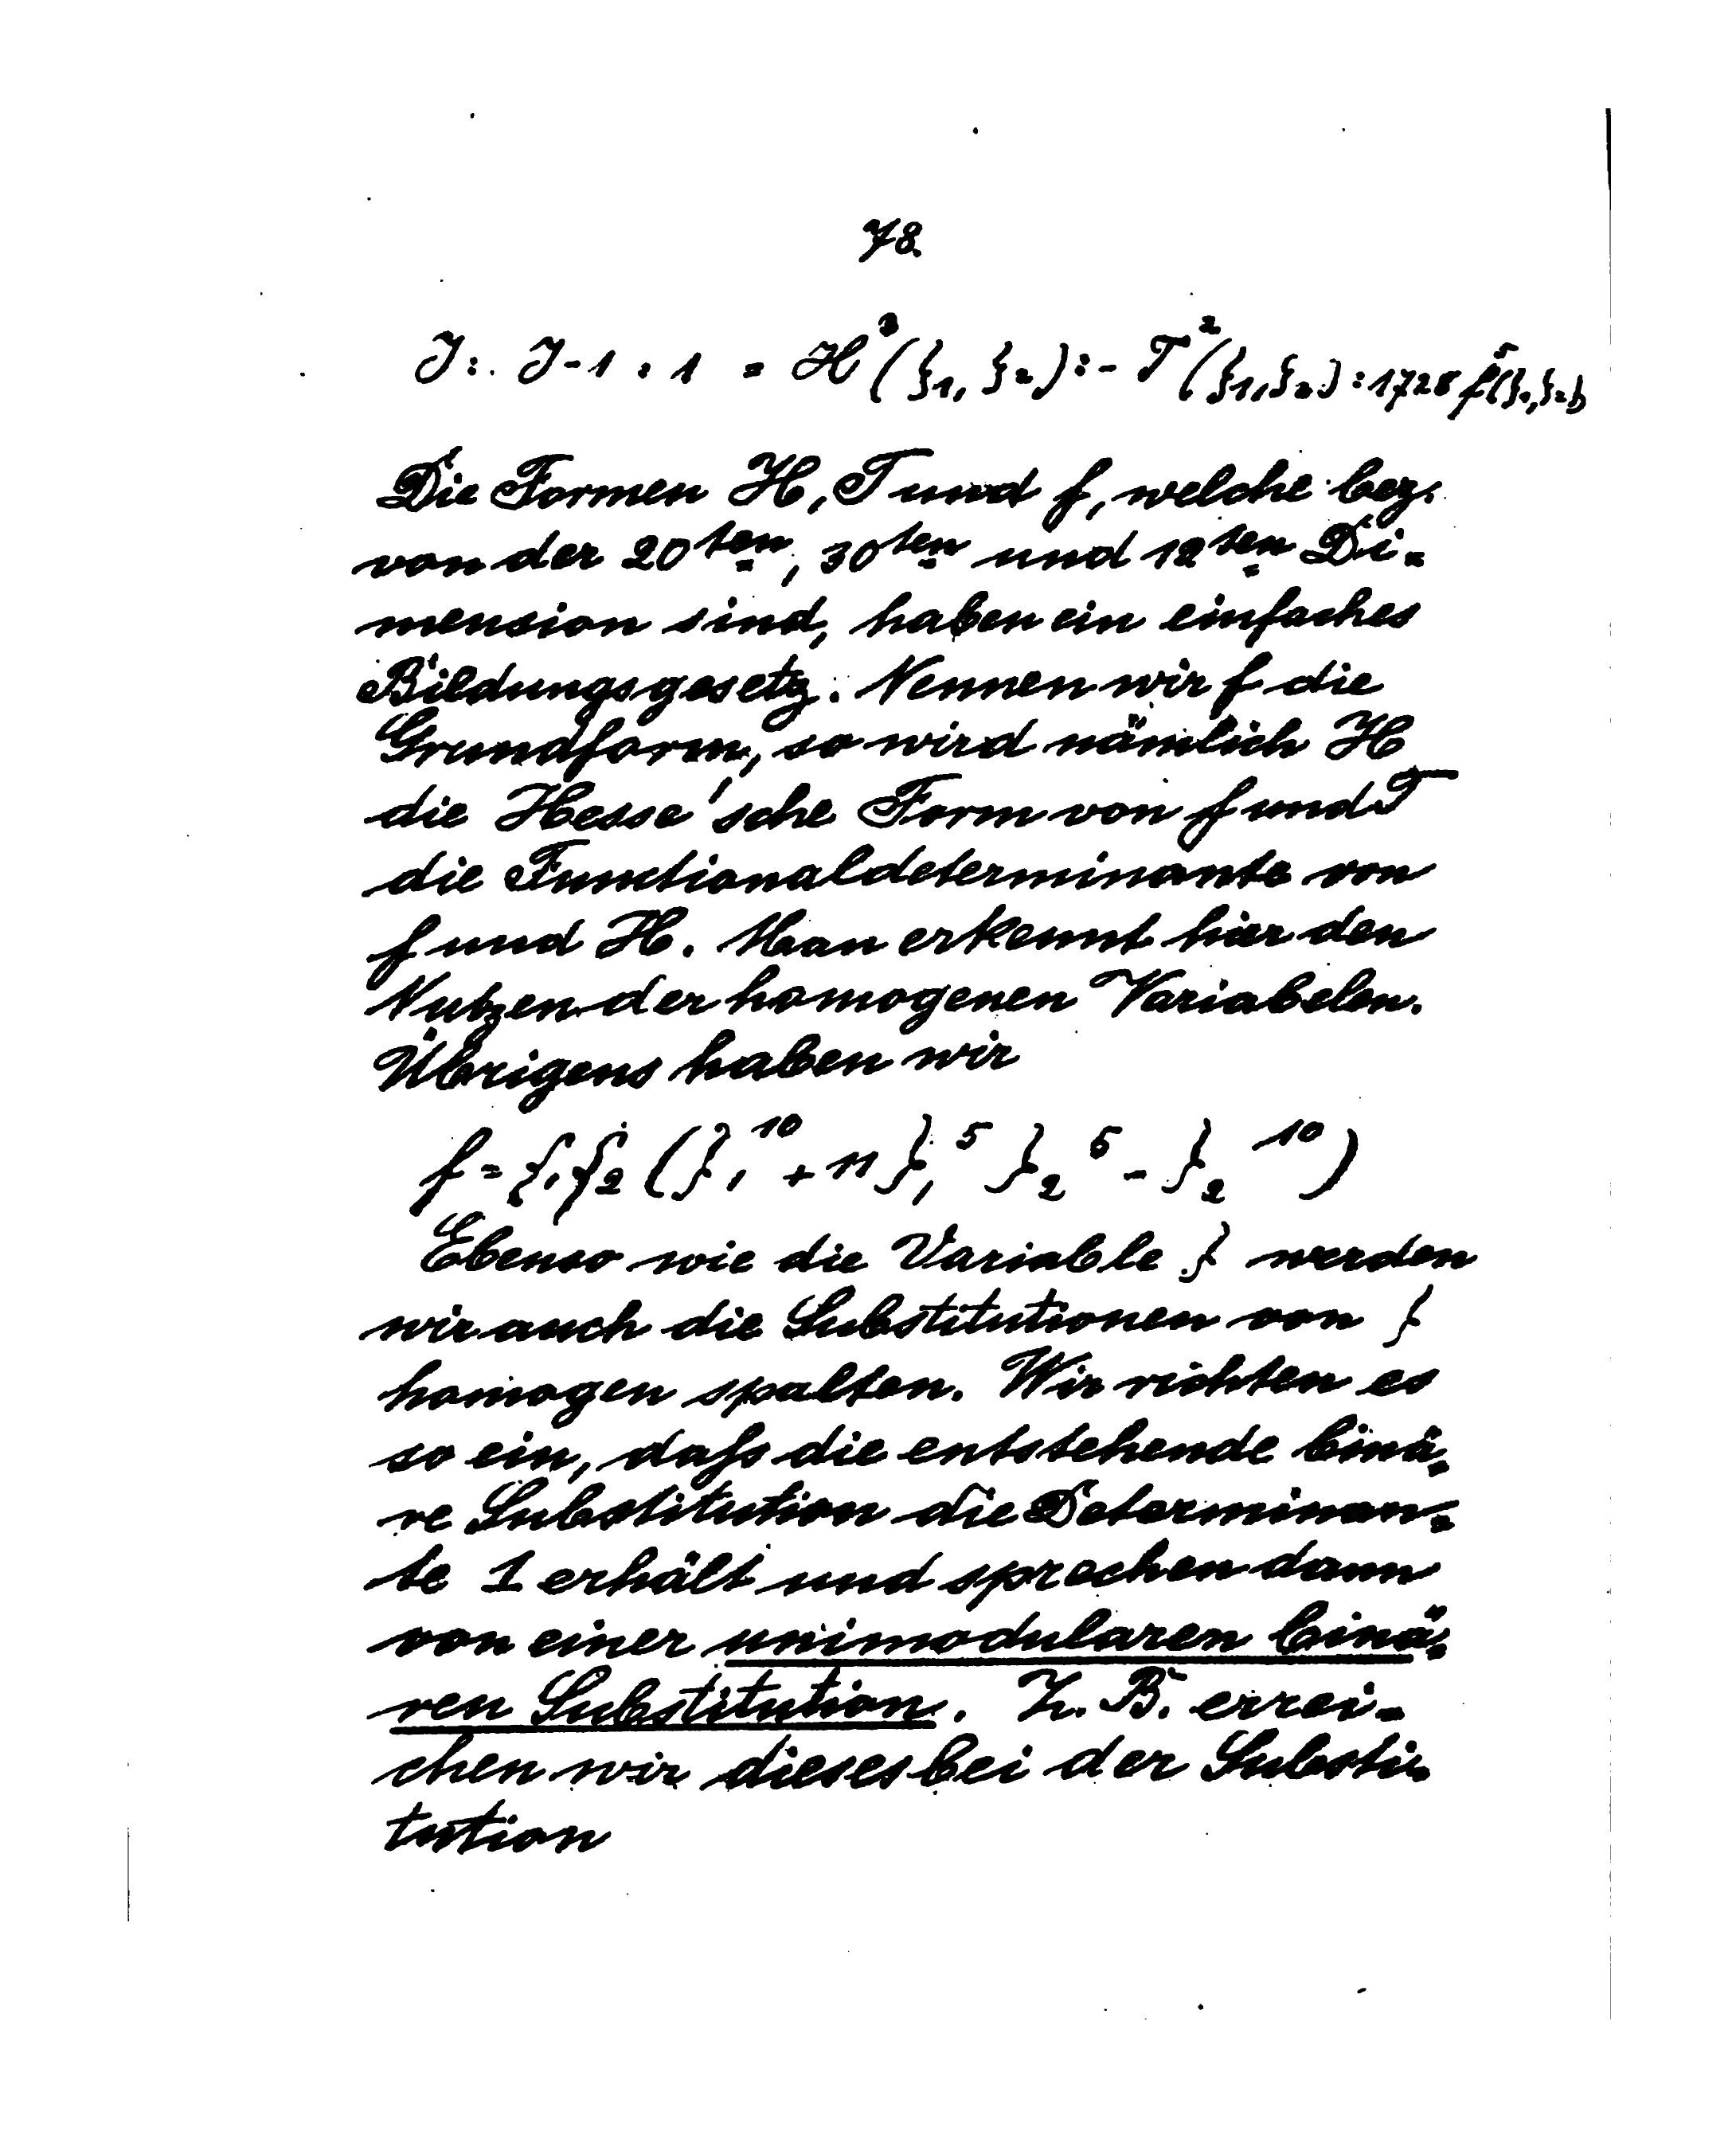 78.
J : J-1 : 1 = H³(ξ₁, ξ₂) : -T²(ξ₁, ξ₂) : 1728 f⁵(ξ₁, ξ₂)
Die Formen H, T und f, welche bez.
von der 20ten, 30ten und 12ten Di-
mension sind, haben ein einfaches
Bildungsgesetz. Nennen wir f die
Grundform, so wird nämlich H
die Hesse'sche Form von f und T
die Functionaldeterminante von
f und H. Man erkennt hier den
Nutzen der homogenen Variabelen.
Übrigens haben wir
f = ξ₁ξ₂ (ξ₁¹⁰ + 11 ξ₁⁵ ξ₂⁵ - ξ₂¹⁰)
Ebenso wie die Variable ξ werden
wir auch die Substitutionen von ξ
homogen spalten. Wir richten es
so ein, daſs die entstehende binä-
re Substitution die Determinan-
te 1 erhält und sprechen dann
von einer unimodularen binä-
ren Substitution. Z. B. errei-
chen wir dieses bei der Substi-
tution